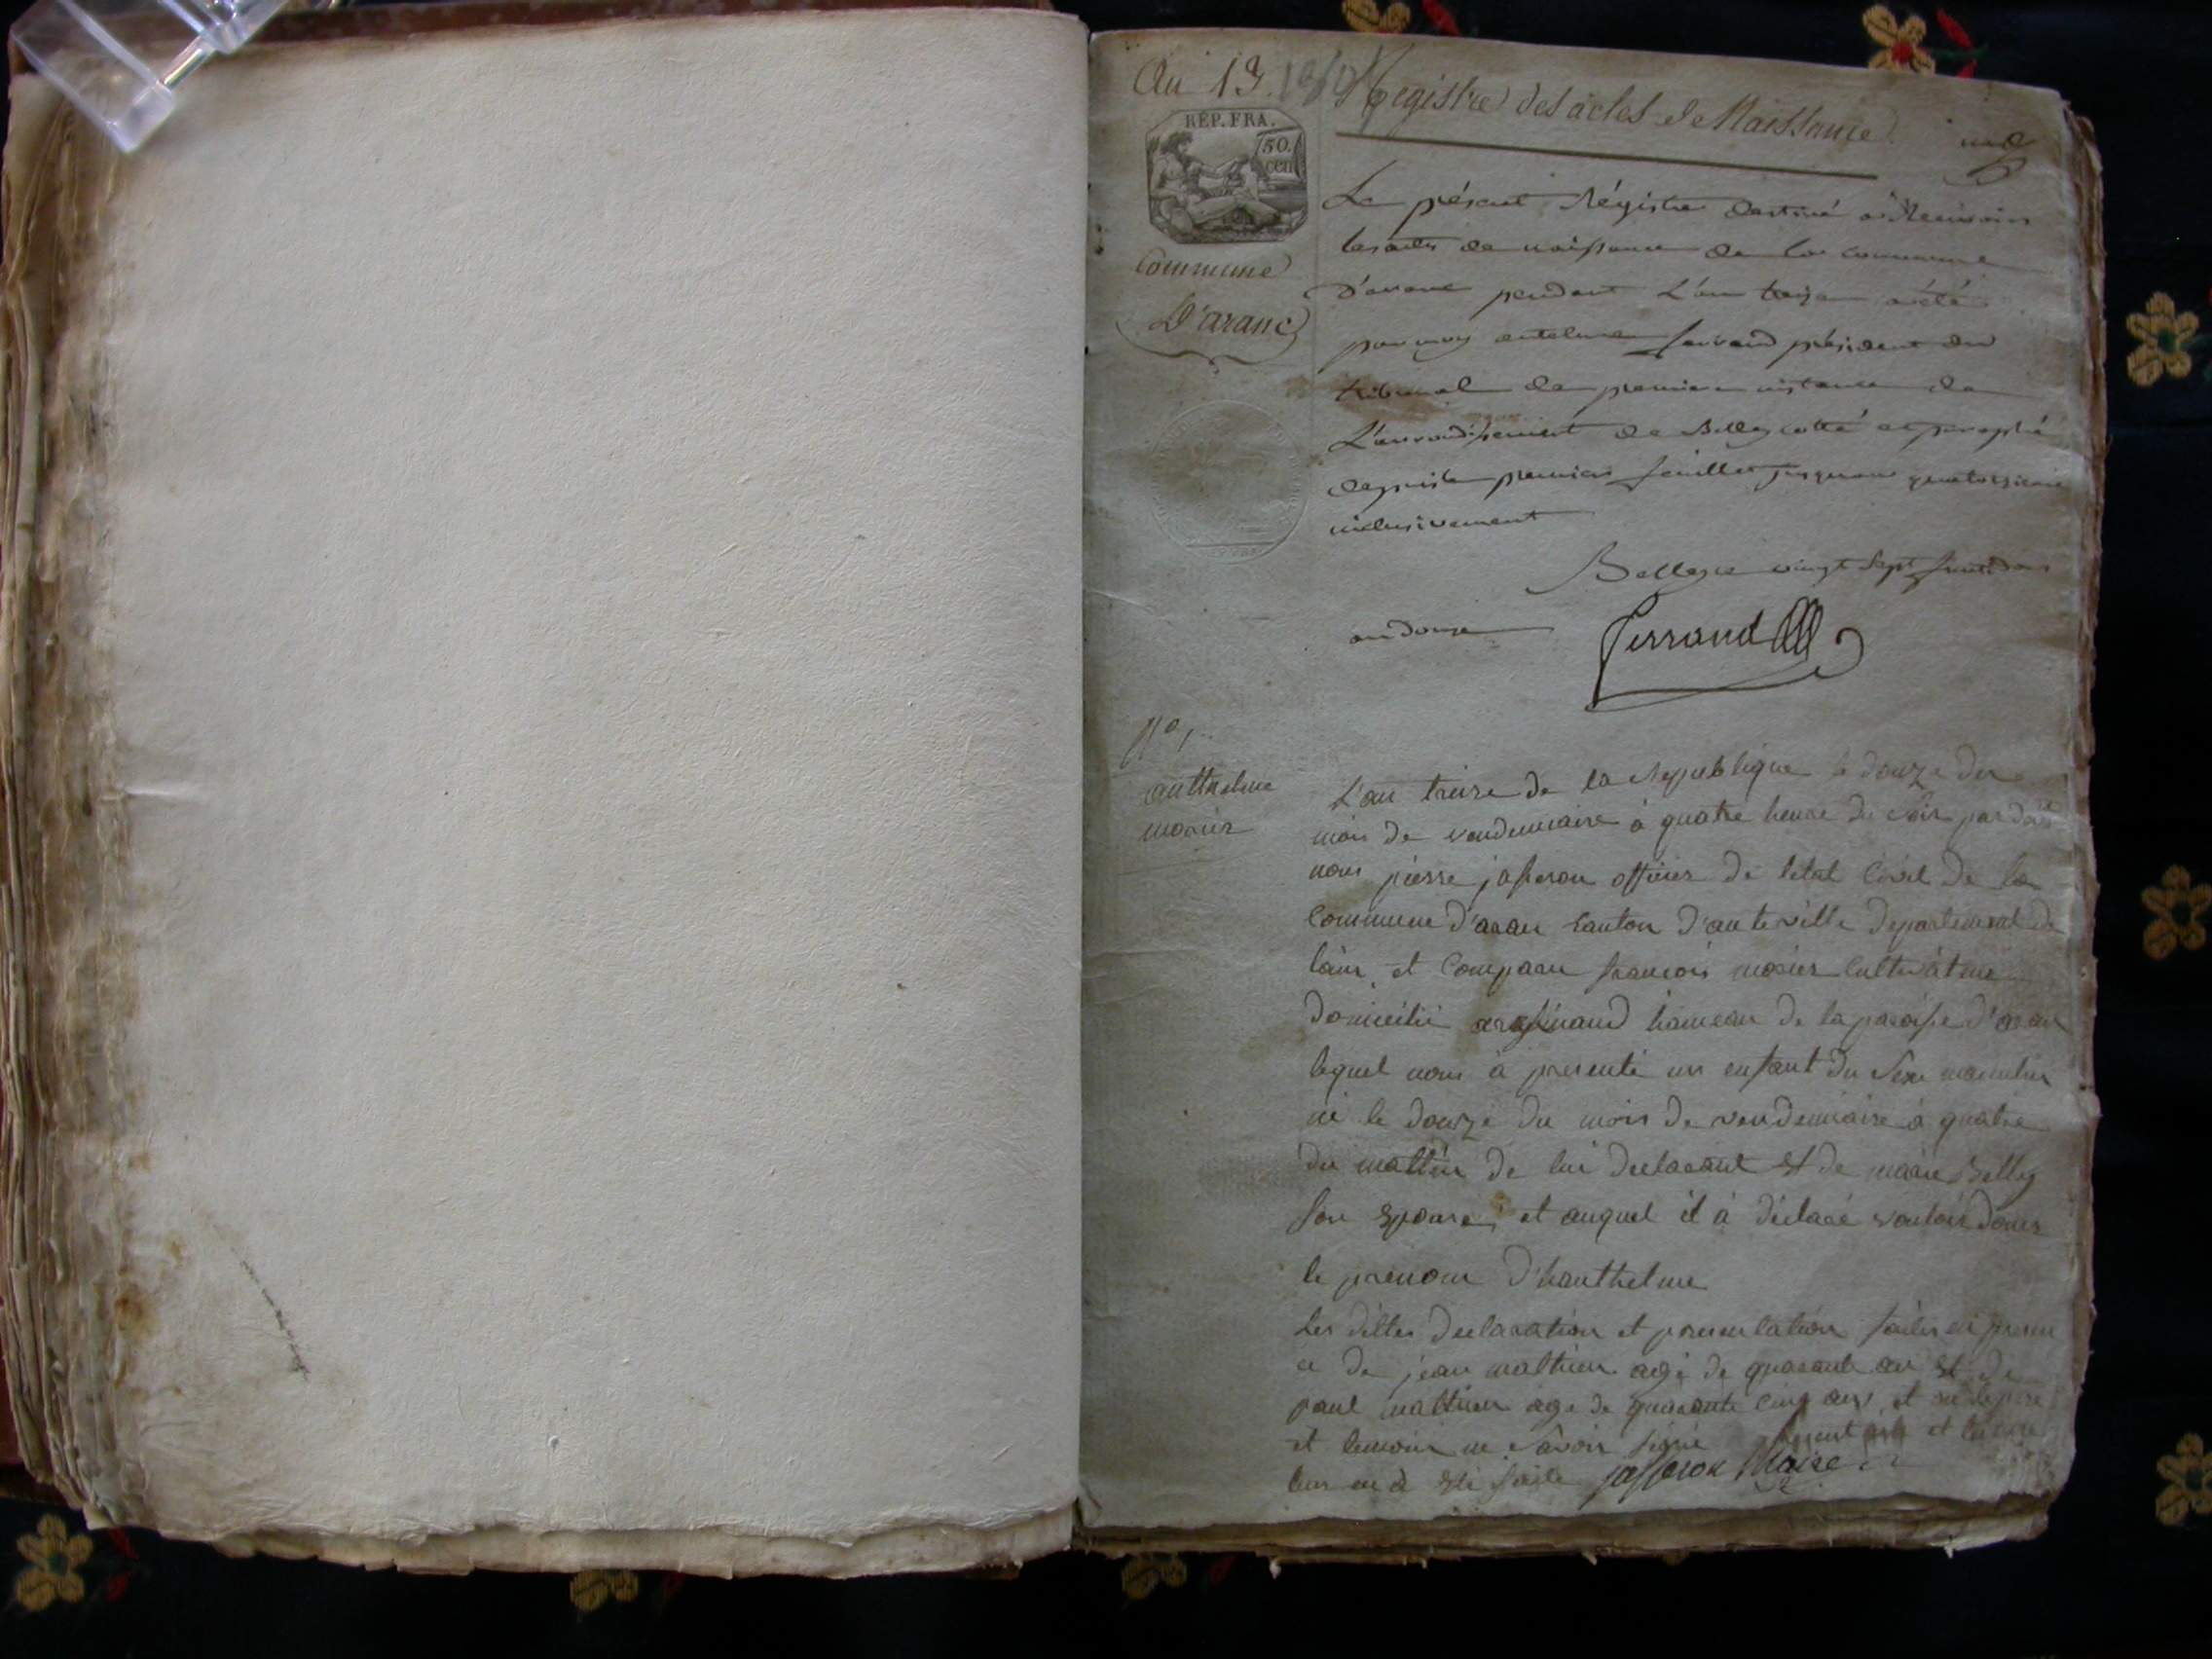 An 13.
Registre des actes de Naissance
un
REP. FRA.
50.
cen
Commune
D'aranc
Le présent Régistre destiné a Recevoir
les actes de naissance de la commune
D'aranc pendant L'an treize a été
par moy antelme ferrand président du
tribunal de premiere instance de
L'arrondissement de Belley cotté et paraphé
depuis le premier feuillet jusqu'au quatorzieme
inclusivement
Belley ce vingt sept fructidor
an douze
Ferrand
N° 1.
anthelme
morier
L'an treize de la Republique le douze du
mois de vendemiaire à quatre heure du soir par devt
nous pierre jasseron officier de letat Civil de la
Commune d'aran Canton d'auteville departement de
lain, et Comparu francois morier Cultivateur
domicilié a resinand hameau de la paroisse d'aran
lequel nous à presenté un enfant du sexe masculin
né le douze du mois de vendemiaire à quatre
du mattin de lui declarant et de marie Belley
son epouse, et auquel il à déclaré vouloir doner
le prenom d'hanthelme
Les dittes declaration et presentation faites en presen
ce de jean mathieu agé de quarante an et de
paul mathieu age de quarante cinq ans, et ont le pere
et temoin ne savoir signé present acte et lecture
leur en à eté faite jasseron Maire